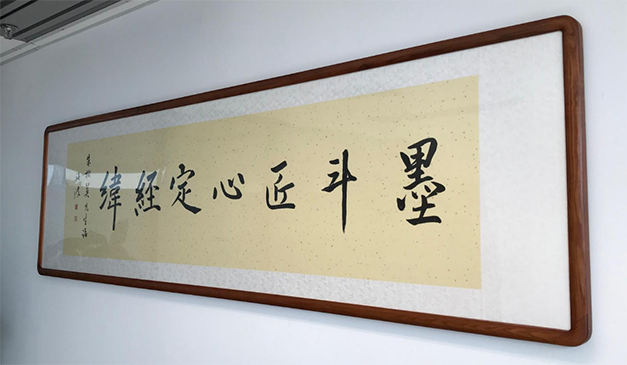 墨斗匠心定經緯